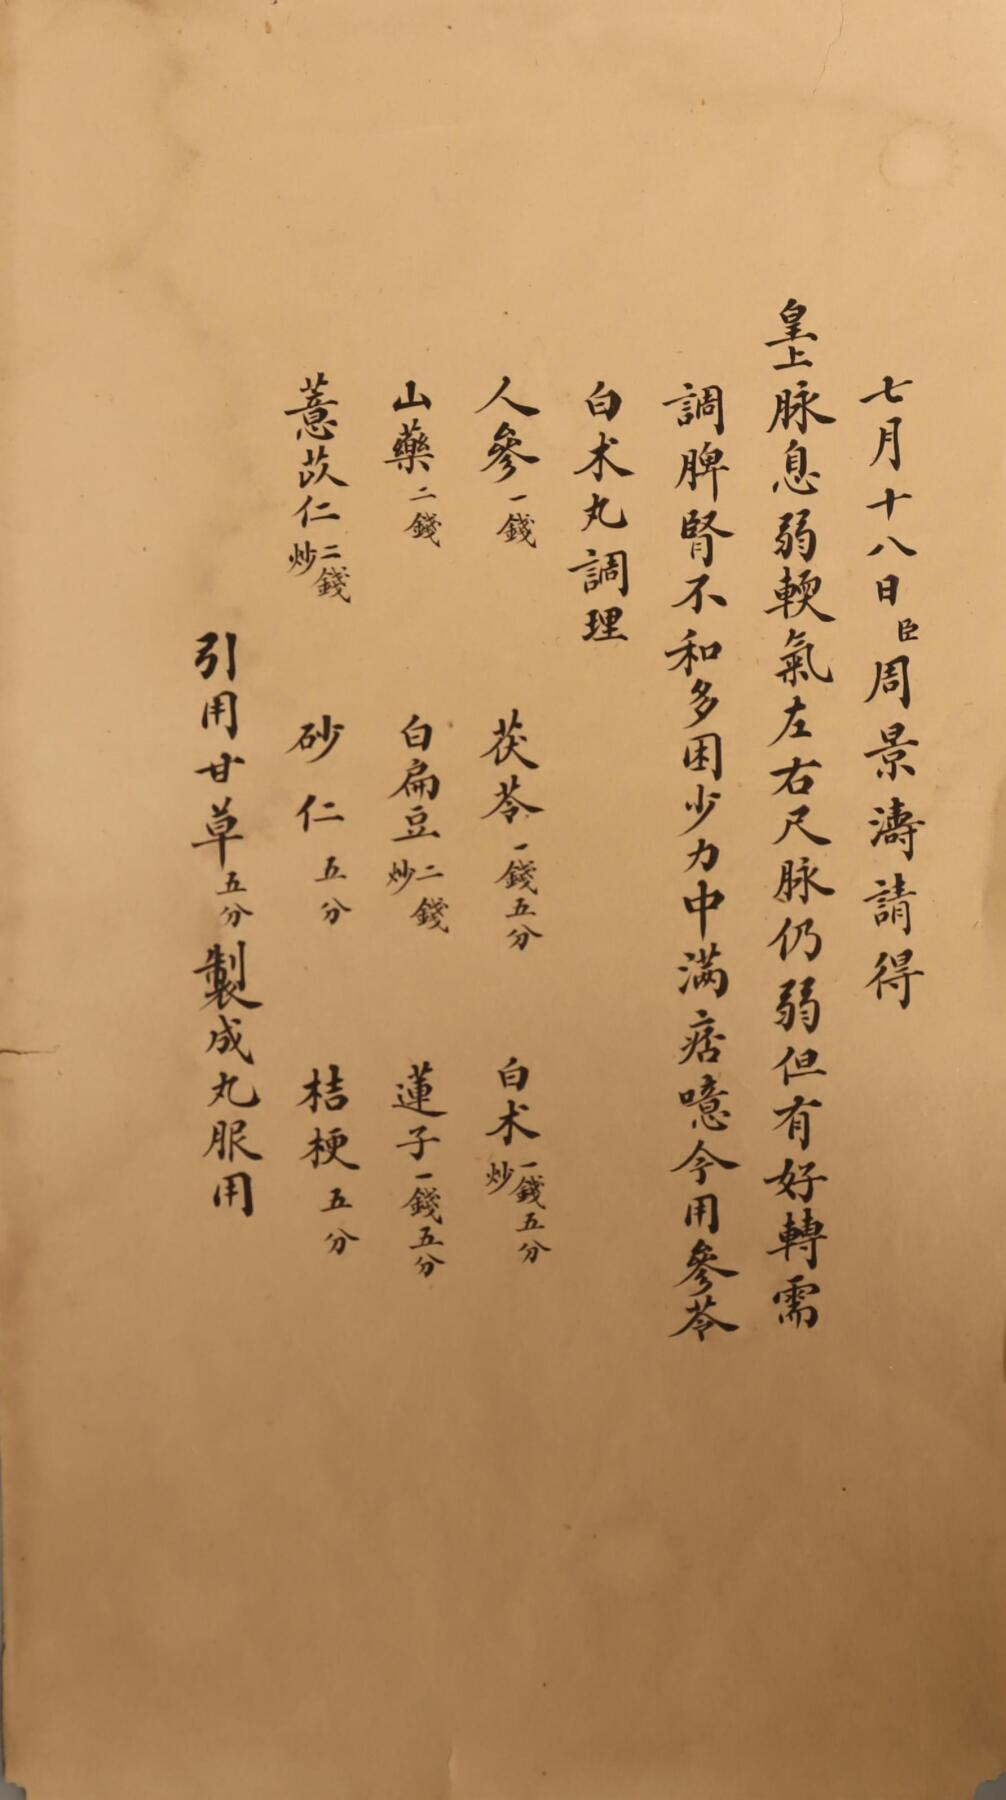 七月十八日臣周景濤請得
皇上脉息弱輭氣左右尺脉仍弱但有好轉需
調脾腎不和多困少力中滿痞噫今用參苓
白术丸調理
人參一錢 茯苓一錢五分 白术一錢五分炒
山藥二錢 白扁豆二錢炒 蓮子一錢五分
薏苡仁二錢炒 砂仁五分 桔梗五分
引用甘草五分製成丸服用